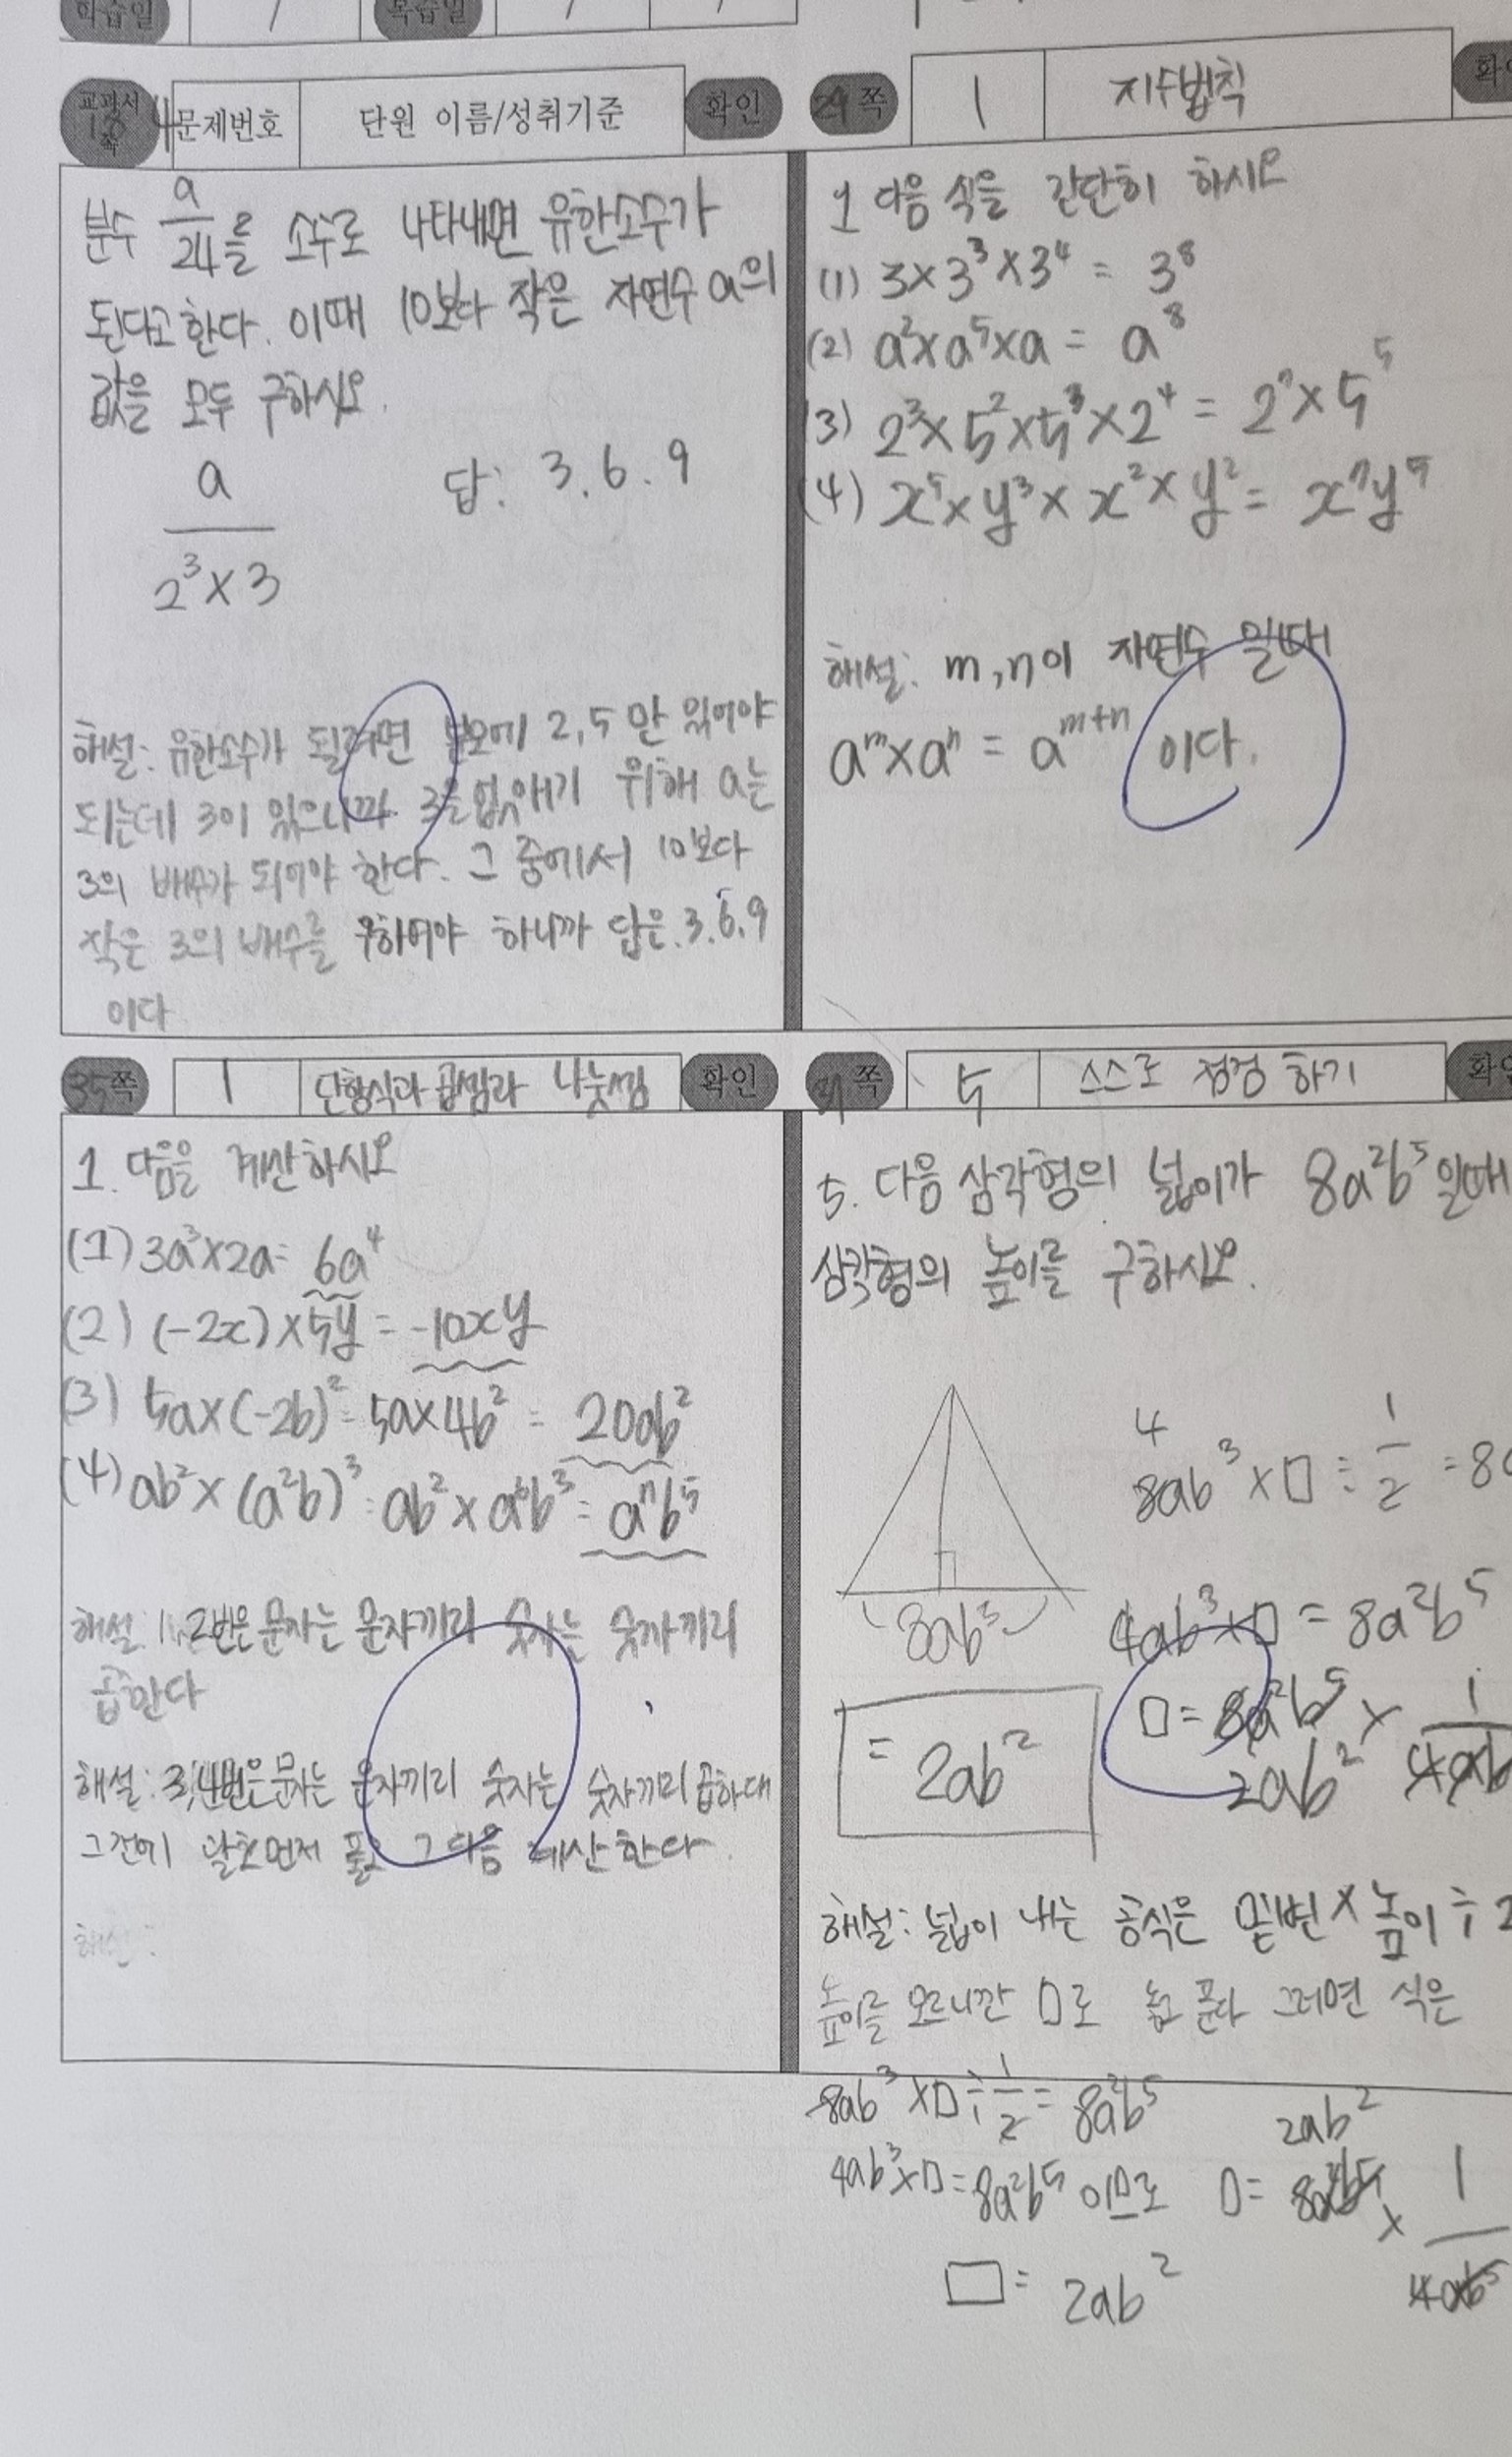 학습일 / 복습일 / /
교과서 18쪽 4 문제번호 단원 이름/성취기준 확인
분수 a/24를 소수로 나타내면 유한소수가
된다고 한다. 이때 10보다 작은 자연수 a의
값을 모두 구하시오.
a/(2³×3) 답: 3. 6. 9
해설: 유한소수가 될려면 분모에 2, 5 만 있어야
되는데 3이 있으니까 3을 없애기 위해 a는
3의 배수가 되어야 한다. 그 중에서 10보다
작은 3의 배수를 구하여야 하니까 답은. 3. 6. 9
이다
29쪽 1 지수법칙 확인
1 다음 식을 간단히 하시오
(1) 3×3³×3⁴ = 3⁸
(2) a²×a⁵×a = a⁸
(3) 2³×5²×5³×2⁴ = 2⁷×5⁵
(4) x⁵×y³×x²×y² = x⁷y⁵
해설: m, n이 자연수 일때
aᵐ×aⁿ = aᵐ⁺ⁿ 이다.
35쪽 1 단항식과 곱셈과 나눗셈 확인
1. 다음을 계산하시오
(1) 3a³×2a= 6a⁴
(2) (-2x)×5y = -10xy
(3) 5a×(-2b)² = 5a×4b² = 20ab²
(4) ab²×(a²b)³ = ab²×a⁶b³ = a⁷b⁵
해설: 1, 2번은 문자는 문자끼리 숫자는 숫자끼리
곱한다
해설: 3, 4번은 문자는 문자끼리 숫자는 숫자끼리 곱하대
그전에 괄호먼저 풀고 그 다음 계산한다.
해설:
쪽 5 스스로 점검 하기 확인
5. 다음 삼각형의 넓이가 8a²b⁵ 일때
삼각형의 높이를 구하시오.
8ab³
4
8ab³×□÷1/2 = 8a
4ab³×□ = 8a²b⁵
□ = 8a²b⁵ × 1/4ab
2ab²
= 2ab²
해설: 넓이 내는 공식은 밑변×높이÷2
높이를 모르니깐 □로 놓고 푼다 그러면 식은
8ab³×□÷1/2 = 8a²b⁵
2ab²
4ab³×□=8a²b⁵ 이므로 □= 8a²b⁵ × 1/4ab⁵
□= 2ab²